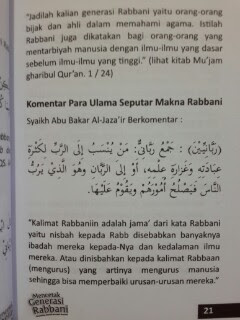 "Jadilah kalian generasi Rabbani yaitu orang-orang
bijak dan ahli dalam memahami agama. Istilah
Rabbani juga dikatakan bagi orang-orang yang
mentarbiyah manusia dengan ilmu-ilmu yang dasar
sebelum ilmu-ilmu yang tinggi." (lihat kitab Mu'jam
gharibul Qur'an. 1 / 24)
Komentar Para Ulama Seputar Makna Rabbani
Syaikh Abu Bakar Al-Jaza'ir Berkomentar :
(رَبَّانِيِّيْنَ) : جَمْعُ رَبَّانِيٍّ: مَنْ يُنْسَبُ إِلَى الرَّبِّ لِكَثْرَةِ
عِبَادَتِهِ وَغَزَارَةِ عِلْمِهِ، أَوْ إِلَى الرَّبَّانِ وَهُوَ الَّذِيْ يَرُبُّ
النَّاسَ فَيُصْلِحُ أُمُوْرَهُمْ وَيَقُوْمُ عَلَيْهَا.
"Kalimat Rabbaniin adalah jama' dari kata Rabbani
yaitu nisbah kepada Rabb disebabkan banyaknya
ibadah mereka kepada-Nya dan kedalaman ilmu
mereka. Atau dinisbahkan kepada kalimat Rabbaan
(mengurus) yang artinya mengurus manusia
sehingga bisa memperbaiki urusan-urusan mereka."
Mencetak
Generasi
Rabbani
21